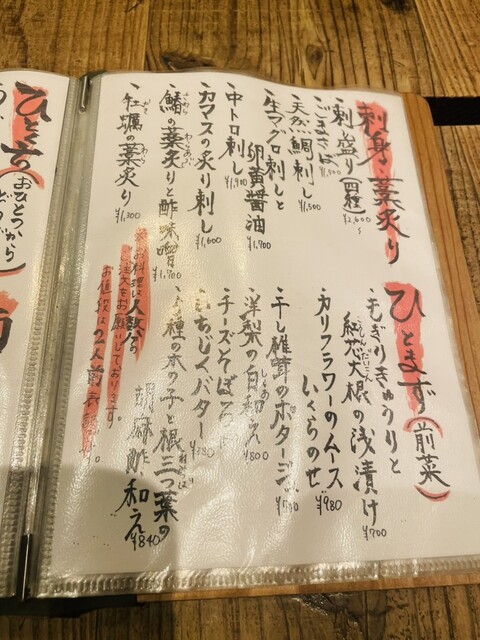 刺身・藁炙り
・刺し盛り四種 ¥2,600〜
・ごまさば ¥1,500
・天然鯛刺し ¥1,500
・生マグロ刺しと
卵黄醤油 ¥1,700
・中トロ刺し ¥1,900
・カマスの炙り刺し ¥1,600
・鰆の藁炙りと酢味噌 ¥1,700
・牡蠣の藁炙り ¥1,300
お料理は人数分の
ご注文をお願いしております。
お値段は2人前
ひとまず(前菜)
・もぎりきゅうりと
紅芯大根の浅漬け ¥700
・カリフラワーのムース
いくらのせ ¥980
・干し椎茸のポタージュ
・洋梨の白和え ¥800
チーズそぼろ
いちじくバター ¥780
種の木の子と根三つ葉の
胡麻酢和え ¥840
ひと
(おひとつから